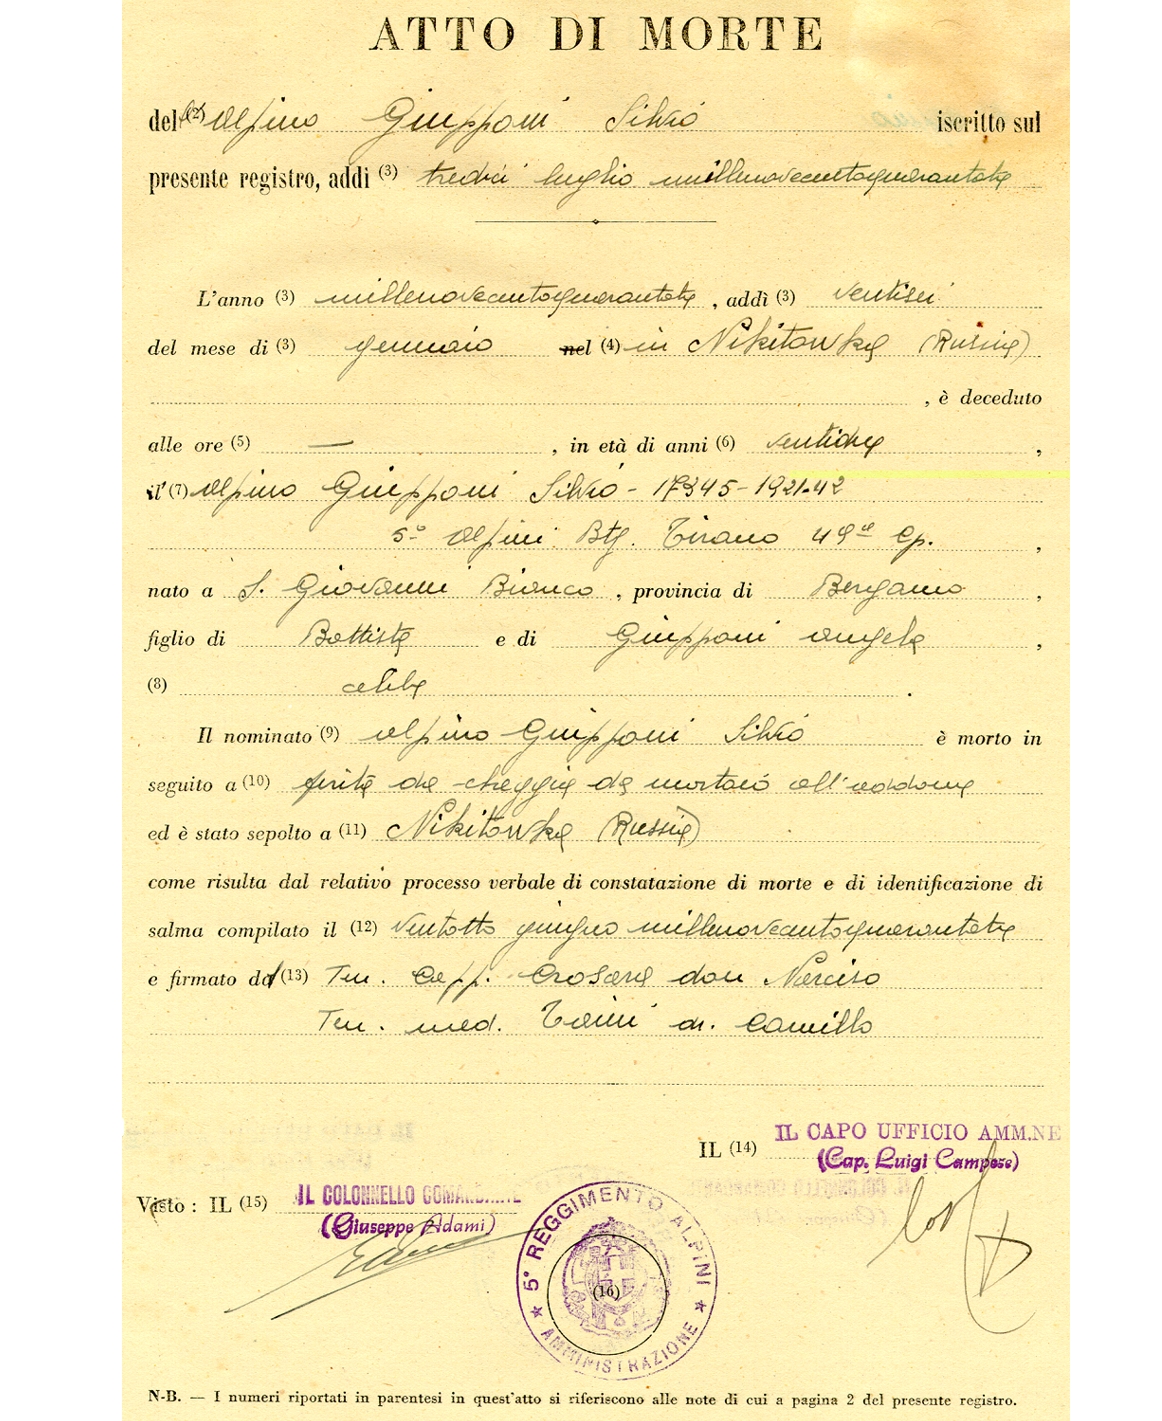 ATTO DI MORTE
del (2) Alpino Giupponi Silvio iscritto sul
presente registro, addì (3) tredici luglio millenovecentoquarantatre
L'anno (3) millenovecentoquarantatre, addì (3) ventisei
del mese di (3) gennaio nel (4) in Nikitowka (Russia)
, è deceduto
alle ore (5) — , in età di anni (6) ventidue ,
il (7) Alpino Giupponi Silvio - 17345 - 1921-42
5° Alpini Btg. Tirano 49ª Cp. ,
nato a S. Giovanni Bianco , provincia di Bergamo ,
figlio di Battista e di Giupponi Angela ,
(8) celibe .
Il nominato (9) Alpino Giupponi Silvio è morto in
seguito a (10) ferita da scheggia da mortaio all'addome
ed è stato sepolto a (11) Nikitowka (Russia)
come risulta dal relativo processo verbale di constatazione di morte e di identificazione di
salma compilato il (12) ventotto giugno millenovecentoquarantatre
e firmato da (13) Ten. Capp. Crosara don Narciso
Ten. med. dr. Camillo
IL (14) IL CAPO UFFICIO AMM.NE
(Cap. Luigi Campese)
Visto : IL (15) IL COLONNELLO COMANDANTE
(Giuseppe Adami)
5° REGGIMENTO ALPINI
(16)
★ AMMINISTRAZIONE ★
N-B. — I numeri riportati in parentesi in quest'atto si riferiscono alle note di cui a pagina 2 del presente registro.